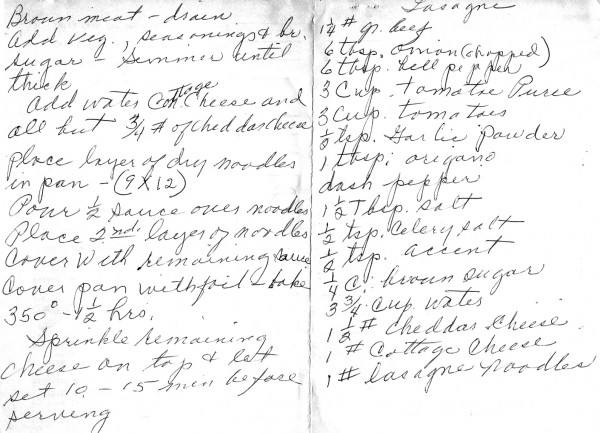 Brown meat - drain
Add veg., seasonings & br.
sugar - Simmer until
thick
Add water Cottage Cheese and
all but 3/4 # of cheddar cheese
place layer of dry noodles
in pan - (9X12)
Pour 1/2 sauce over noodles
Place 2nd. layer of noodles
Cover with remaining sauce
Cover pan with foil - bake
350° - 1 1/2 hrs.
Sprinkle remaining
cheese on top & let
set 10 - 15 min before
serving
Lasagne
1 1/4 # gr. beef
6 tbsp. onion (chopped)
6 tbsp. bell pepper
3 Cup. tomatoe Puree
3 Cup. tomatoes
1/2 tsp. Garlic Powder
1 tbsp. oregano
dash pepper
1 1/2 Tbsp. salt
1/2 tsp. Celery salt
1/2 tsp. accent
1/4 C. brown sugar
3 3/4 Cup water
1 1/2 # cheddar Cheese
1 # Cottage Cheese
1 # lasagne noodles